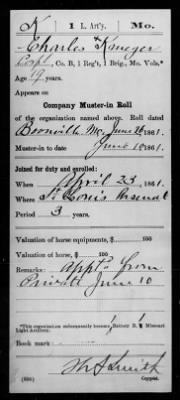 K 1 L. Art'y. Mo.
Charles Krueger
Corpl, Co. B, 1 Reg't, 1 Brig., Mo. Vols.*
Age 19 years.
Appears on
Company Muster-in Roll
of the organization named above. Roll dated
Boonville, Mo. June 1861.
Muster-in to date June 18, 1861.
Joined for duty and enrolled:
When April 23, 1861.
Where St Louis Arsenal
Period 3 years.
Valuation of horse equipments, $ 100
Valuation of horse, $ 100
Remarks: Appt'd from
Private June 10
*This organization subsequently became Battery B, 1 Missouri
Light Artillery.
Book mark:
Smith
Copyist.